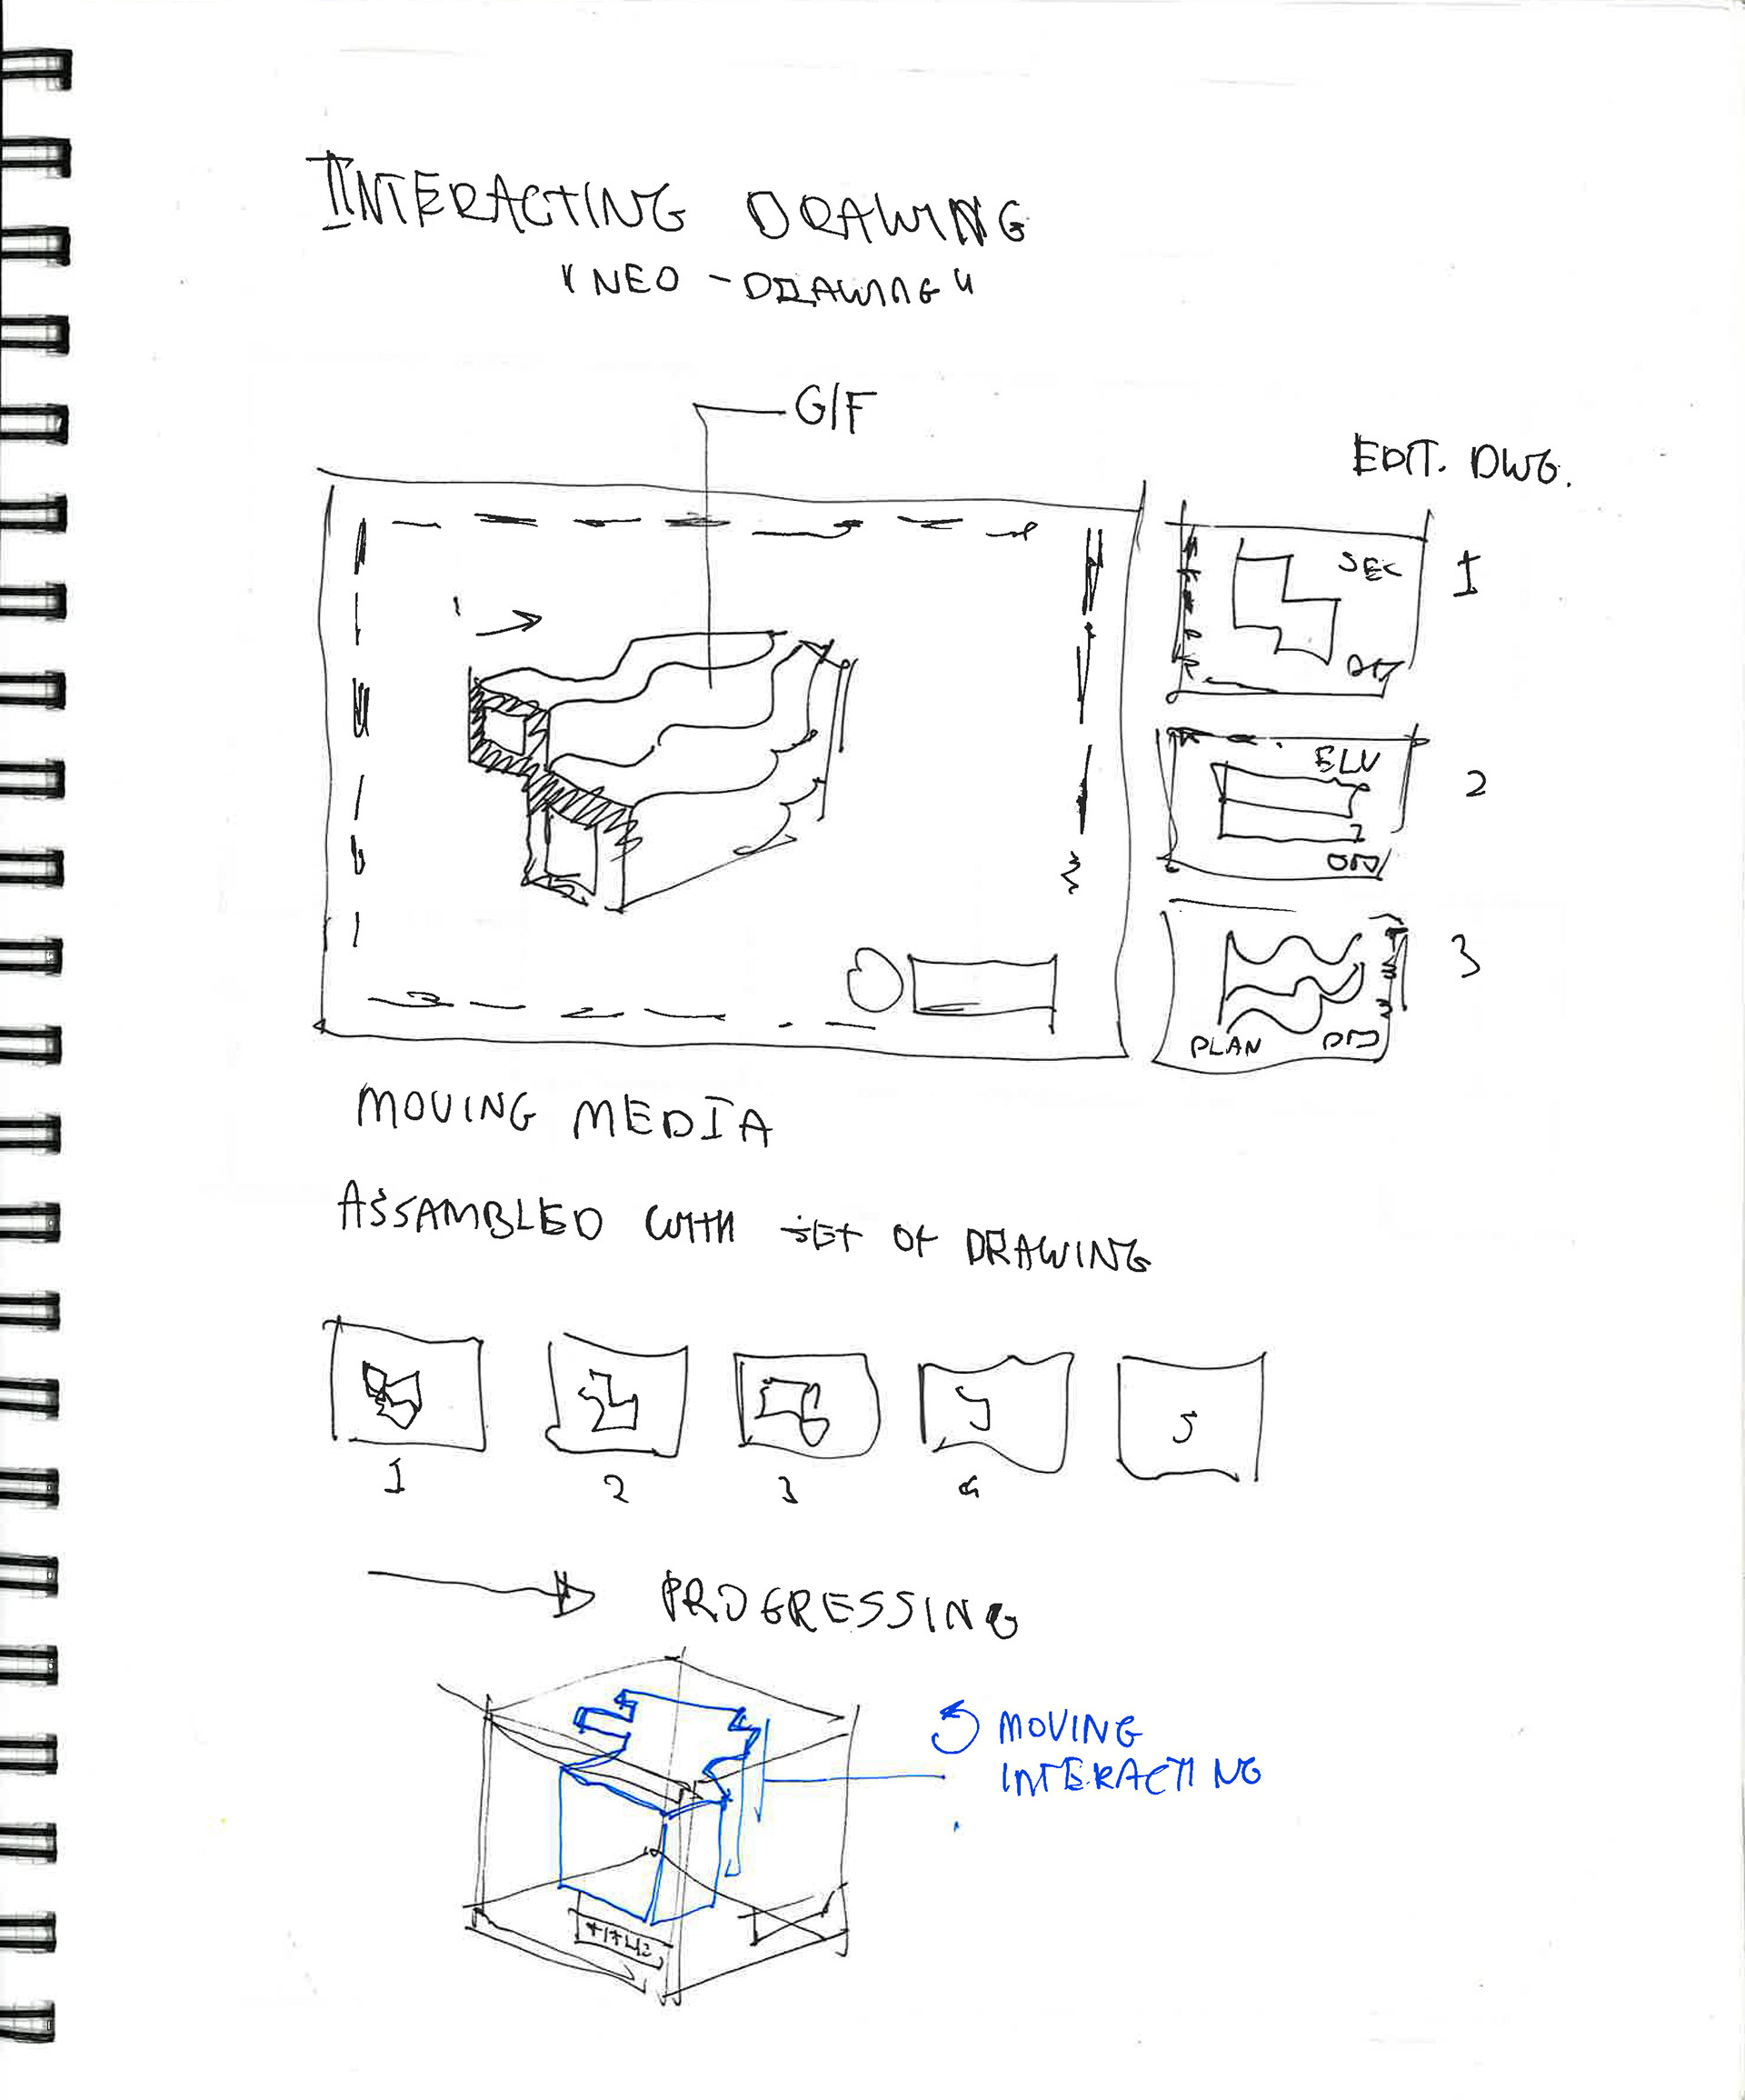 INTERACTING DRAWING
"NEO - DRAWING"
GIF
EDIT. DWG.
SEC
1
ELV
2
PLAN
3
MOVING MEDIA
ASSAMBLED WITH SET OF DRAWING
5
1
2
3
4
PROGRESSING
MOVING
INTERACTING
TITLE